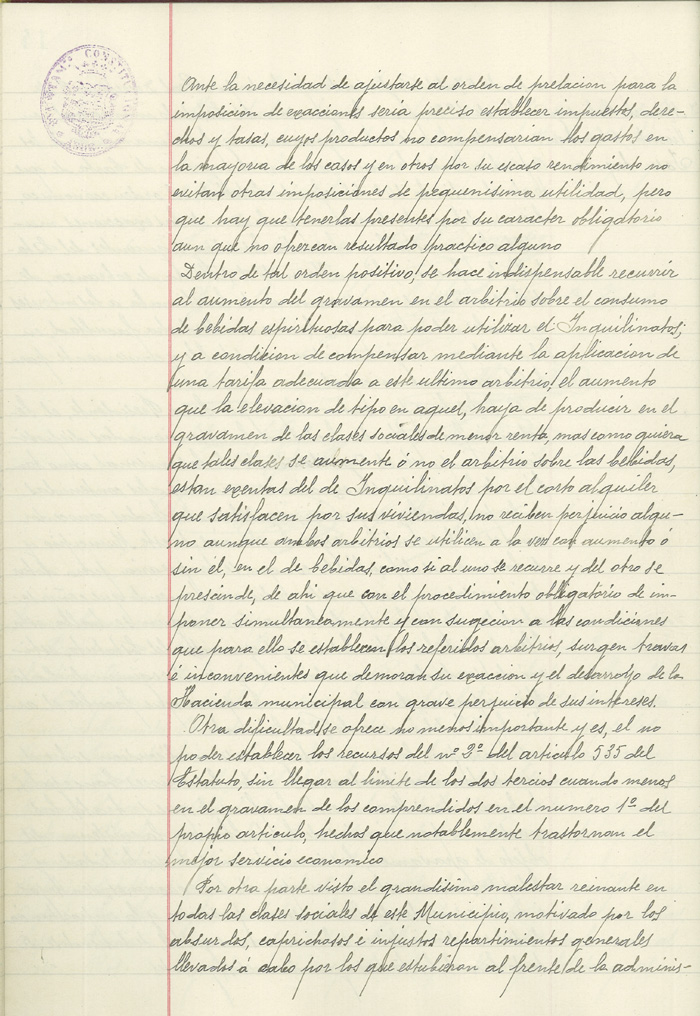 CONSTITUCIONAL
Ante la necesidad de ajustarse al orden de prelacion para la
imposicion de exacciones seria preciso establecer impuestos, dere-
chos y tasas, cuyos productos no compensarian los gastos en
la mayoria de los casos y en otros por su escaso rendimiento no
evitan otras imposiciones de pequenisima utilidad, pero
que hay que tenerlas presentes por su caracter obligatorio
aun que no ofrezcan resultado practico alguno
Dentro de tal orden positivo, se hace indispensable recurrir
al aumento del gravamen en el arbitrio sobre el consumo
de bebidas espirituosas para poder utilizar el Inquilinatos;
y a condicion de compensar mediante la aplicacion de
una tarifa adecuada a este ultimo arbitrio, el aumento
que la elevacion de tipo en aquel, haya de producir en el
gravamen de las clases sociales de menor renta, mas como quiera
que tales clases se aumente ó no el arbitrio sobre las bebidas,
estan exentas del de Inquilinatos por el corto alquiler
que satisfacen por sus viviendas, no reciben perjuicio algu-
no aunque ambos arbitrios se utilicen a la vez con aumento ó
sin él, en el de bebidas, como si al uno se recurre y del otro se
prescinde, de ahi que con el procedimiento obligatorio de im-
poner simultaneamente y con sugecion a las condiciones
que para ello se establecen los referidos arbitrios, surgen travas
é inconvenientes que demoran su exaccion y el desarrollo de la
Hacienda municipal con grave perjuicio de sus intereses.
Otra dificultad se ofrece no menos importante y es, el no
poder establecer los recursos del nº 2º del articulo 535 del
Estatuto, sin llegar al limite de los dos tercios cuando menos
en el gravamen de los comprendidos en el numero 1º del
propio articulo, hechos que notablemente trastornan el
mejor servicio economico
Por otra parte visto el grandisimo malestar reinante en
todas las clases sociales de este Municipio, motivado por los
absurdos, caprichosos é injustos repartimientos generales
llevados á cabo por los que estubieran al frente de la adminis-